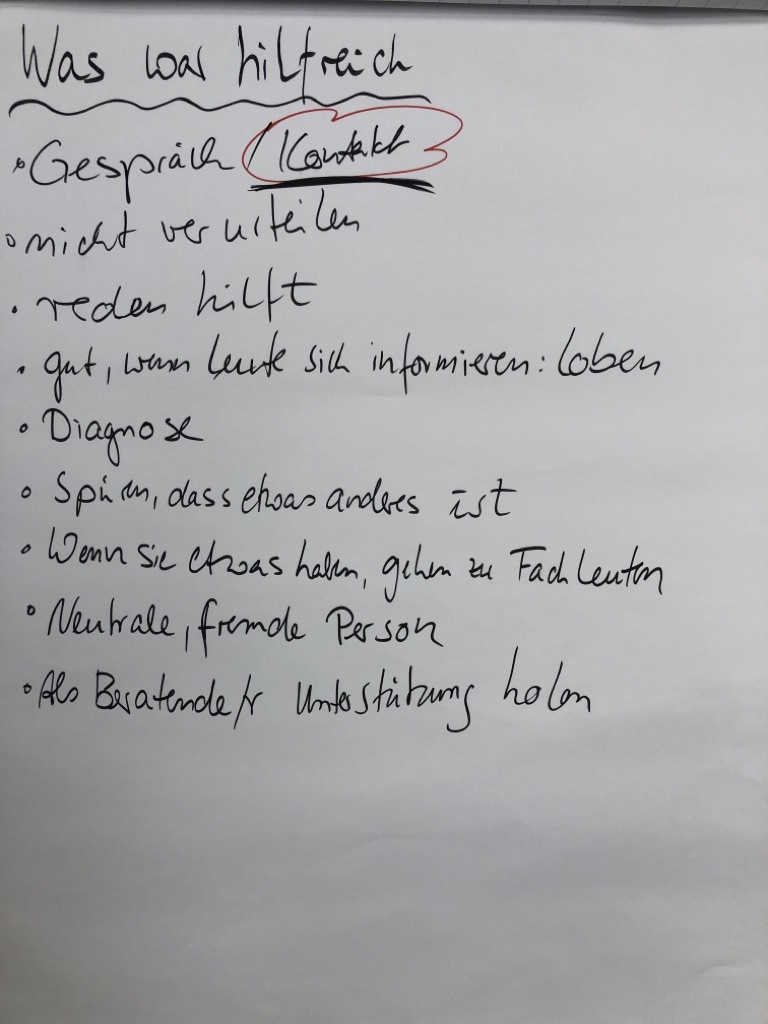 Was war hilfreich
• Gespräch / Kontakt
• nicht verurteilen
• reden hilft
• gut, wenn Leute sich informieren: loben
• Diagnose
• Spüren, dass etwas anderes ist
• Wenn sie etwas haben, gehen zu Fachleuten
• Neutrale, fremde Person
• Als Beratende/r Unterstützung holen